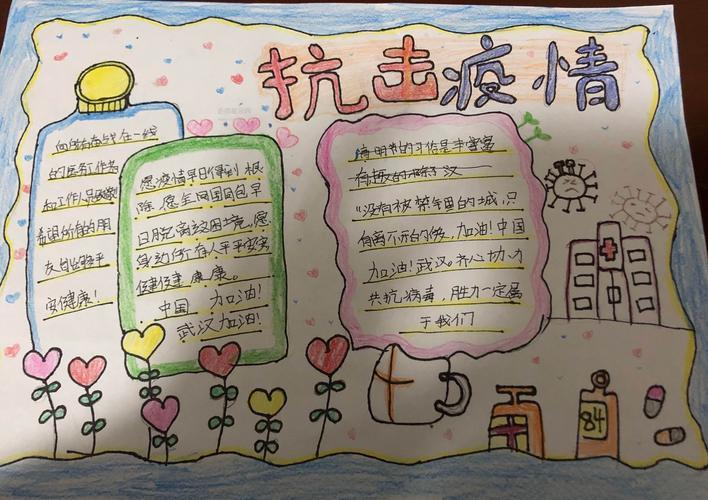 抗击疫情
向所有奋战在一线
的医务工作者
和工作人员致敬
希望所有的朋
友自始终平
安健康!
愿疫情早日得到根
除,愿全网国同包早
日脱离疫困境,愿
身边所有人平平安安
健健康康。
中国 加油!
武汉加油!
清明节的习俗是丰富
有趣的
"没有被禁牢固的城,只
有离不开的你,加油!中国
加油!武汉。齐心协力
共抗病毒,胜力一定属
于我们
84